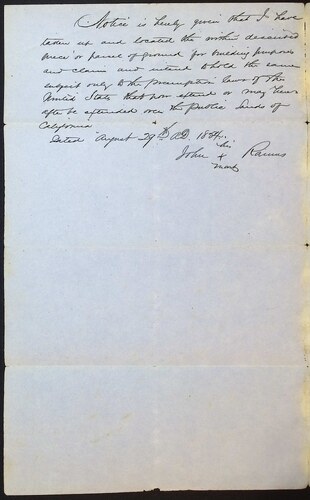 Notice is herby given that I have
taken up and located the within described
piece or parcel of ground for building purposes
and claim and intend to hold the same
subject only to the preemption laws of the
United States that now extend or may here
after be extended over the public lands of
California
Dated August 29th AD. 1854.
John his x mark